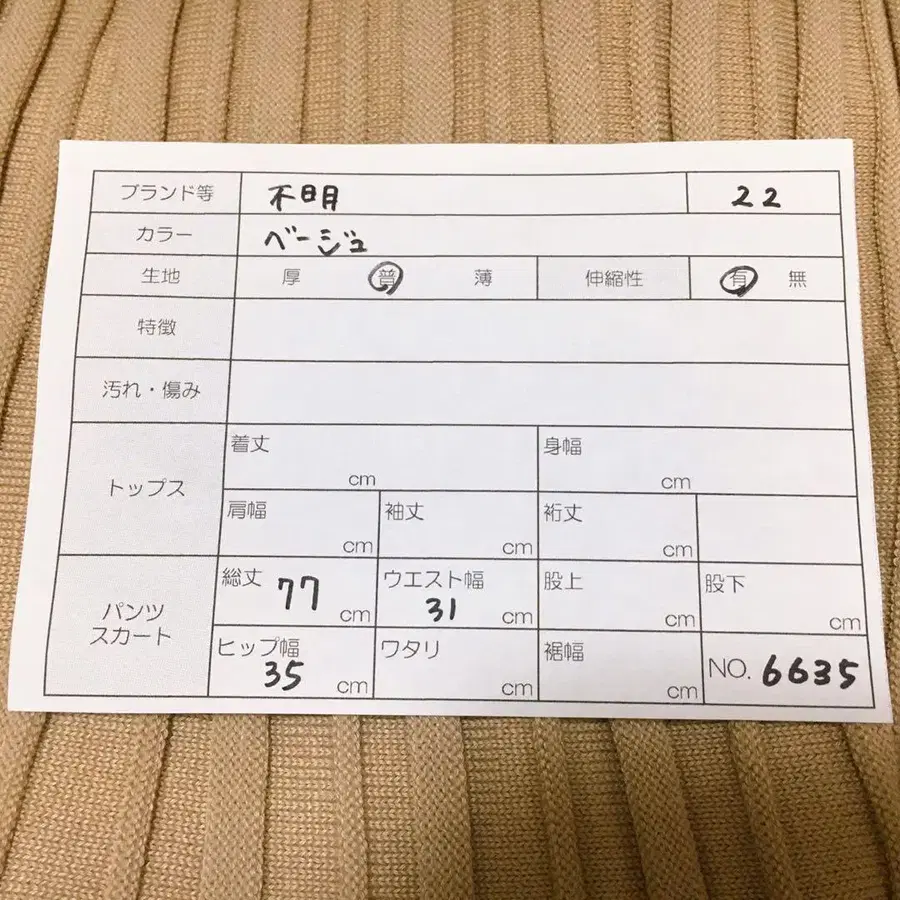 ブランド等 不明 22
カラー ベージュ
生地 厚 普 薄 伸縮性 有 無
特徴
汚れ・傷み
トップス
着丈 cm 身幅 cm
肩幅 cm 袖丈 cm 裄丈 cm
パンツ
スカート
総丈 77 cm ウエスト幅 31 cm 股上 cm 股下 cm
ヒップ幅 35 cm ワタリ cm 裾幅 cm NO. 6635